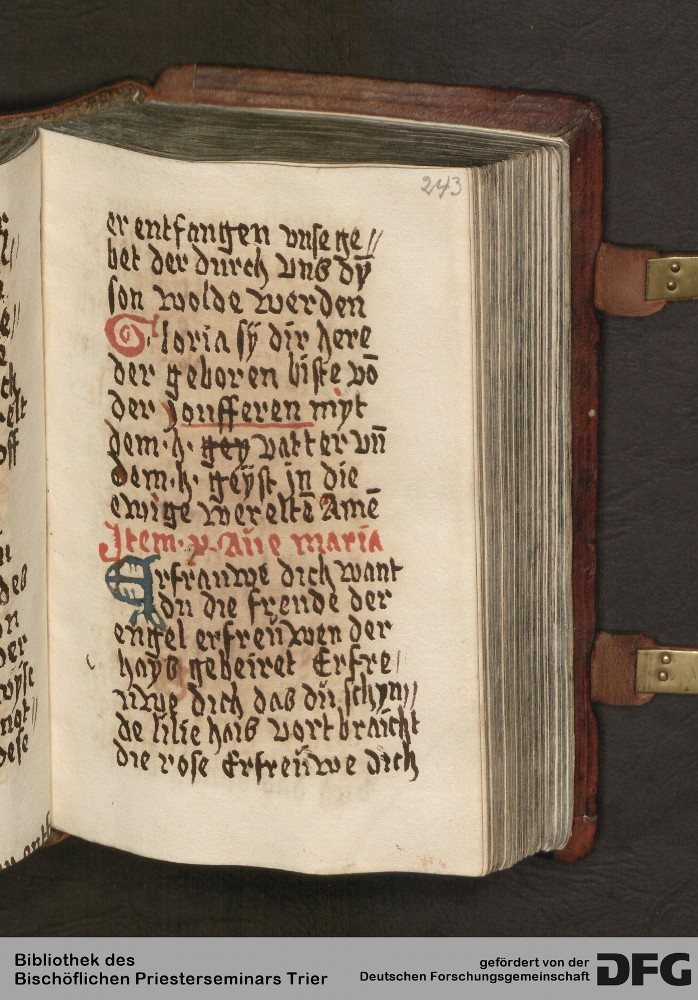 243
er entfangen vnse ge//
bet der durch vns dÿ
son wolde werden
Gloria sÿ dir here
der geboren biste vō
der Jonfferen myt
dem·h· gey vatter vn̄
dem·h· geÿst jn die
ewige wereltē Amē
Jtem·v·Aůe maria
Erfrauwe dich want
du die freude der
engel erfreůwen der
hays gebeiret Erfre/
ůwe dich das dů schyn//
de lilie hais vort braicht
die rose Erfreůwe dich
Bibliothek des
Bischöflichen Priesterseminars Trier
gefördert von der
Deutschen Forschungsgemeinschaft
DFG